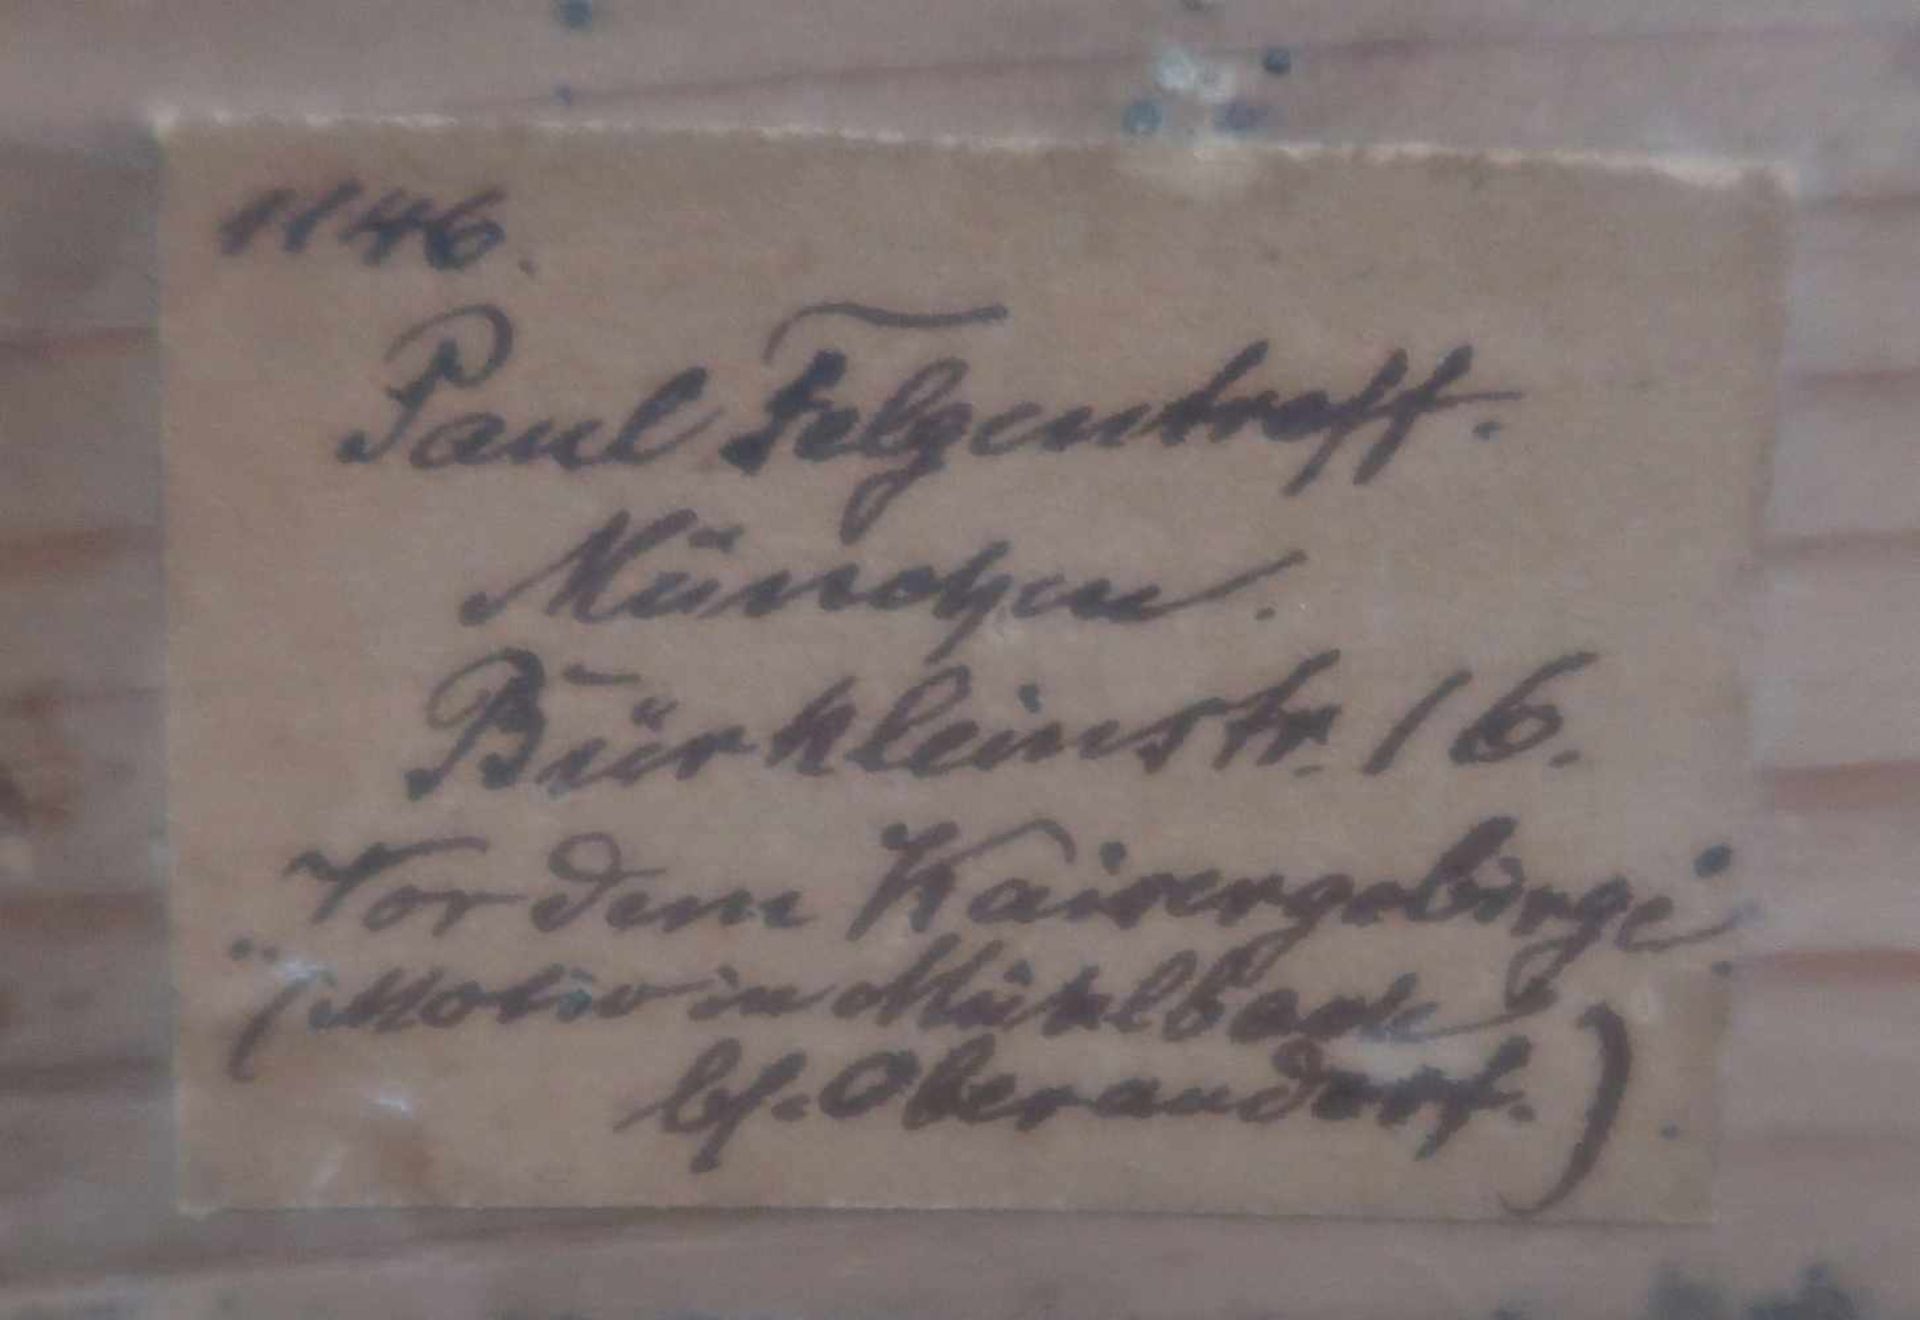 1146.
Paul Felgentreff.
München.
Bürkleinstr. 16.
Vor dem Kaisergebirge
(Motiv in Mühlbach
bf. Oberaudorf.)